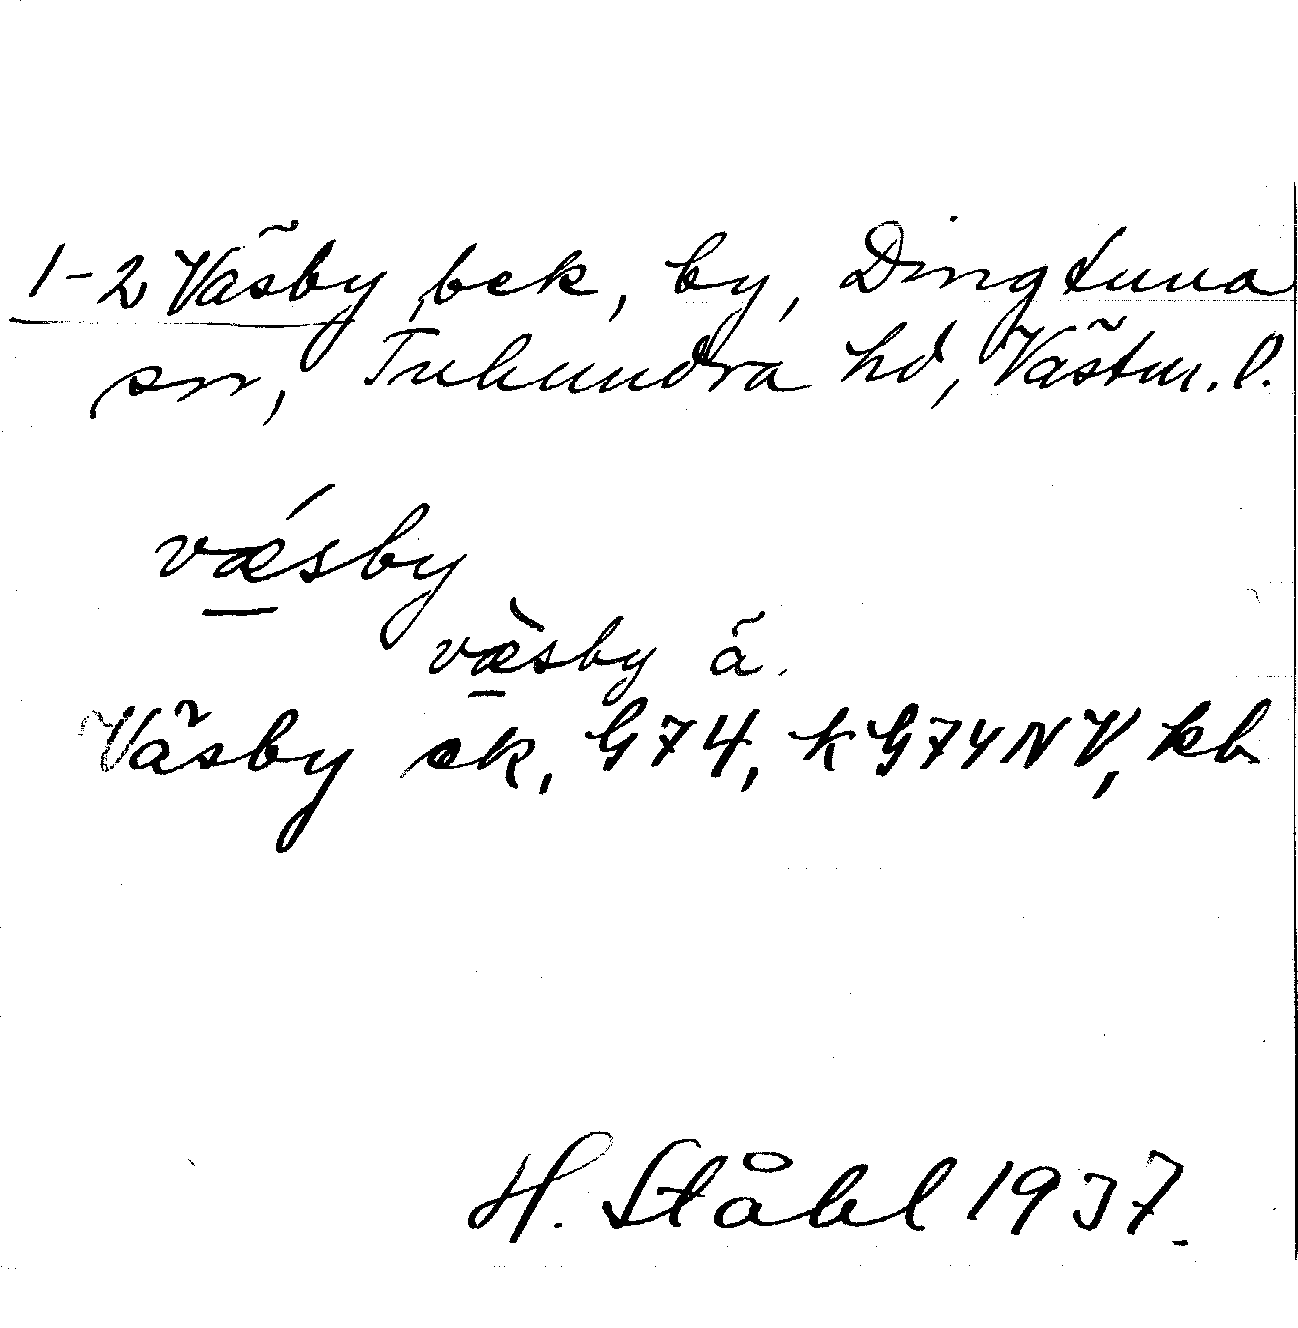 1-2 Väsby, bek, by, Dingtuna
sn, Tuhundra hd, Västm. l.
vǽsby
væ̀sby ä.
Väsby ek, G74, kG74NV, kb
H. Ståhl 1937.